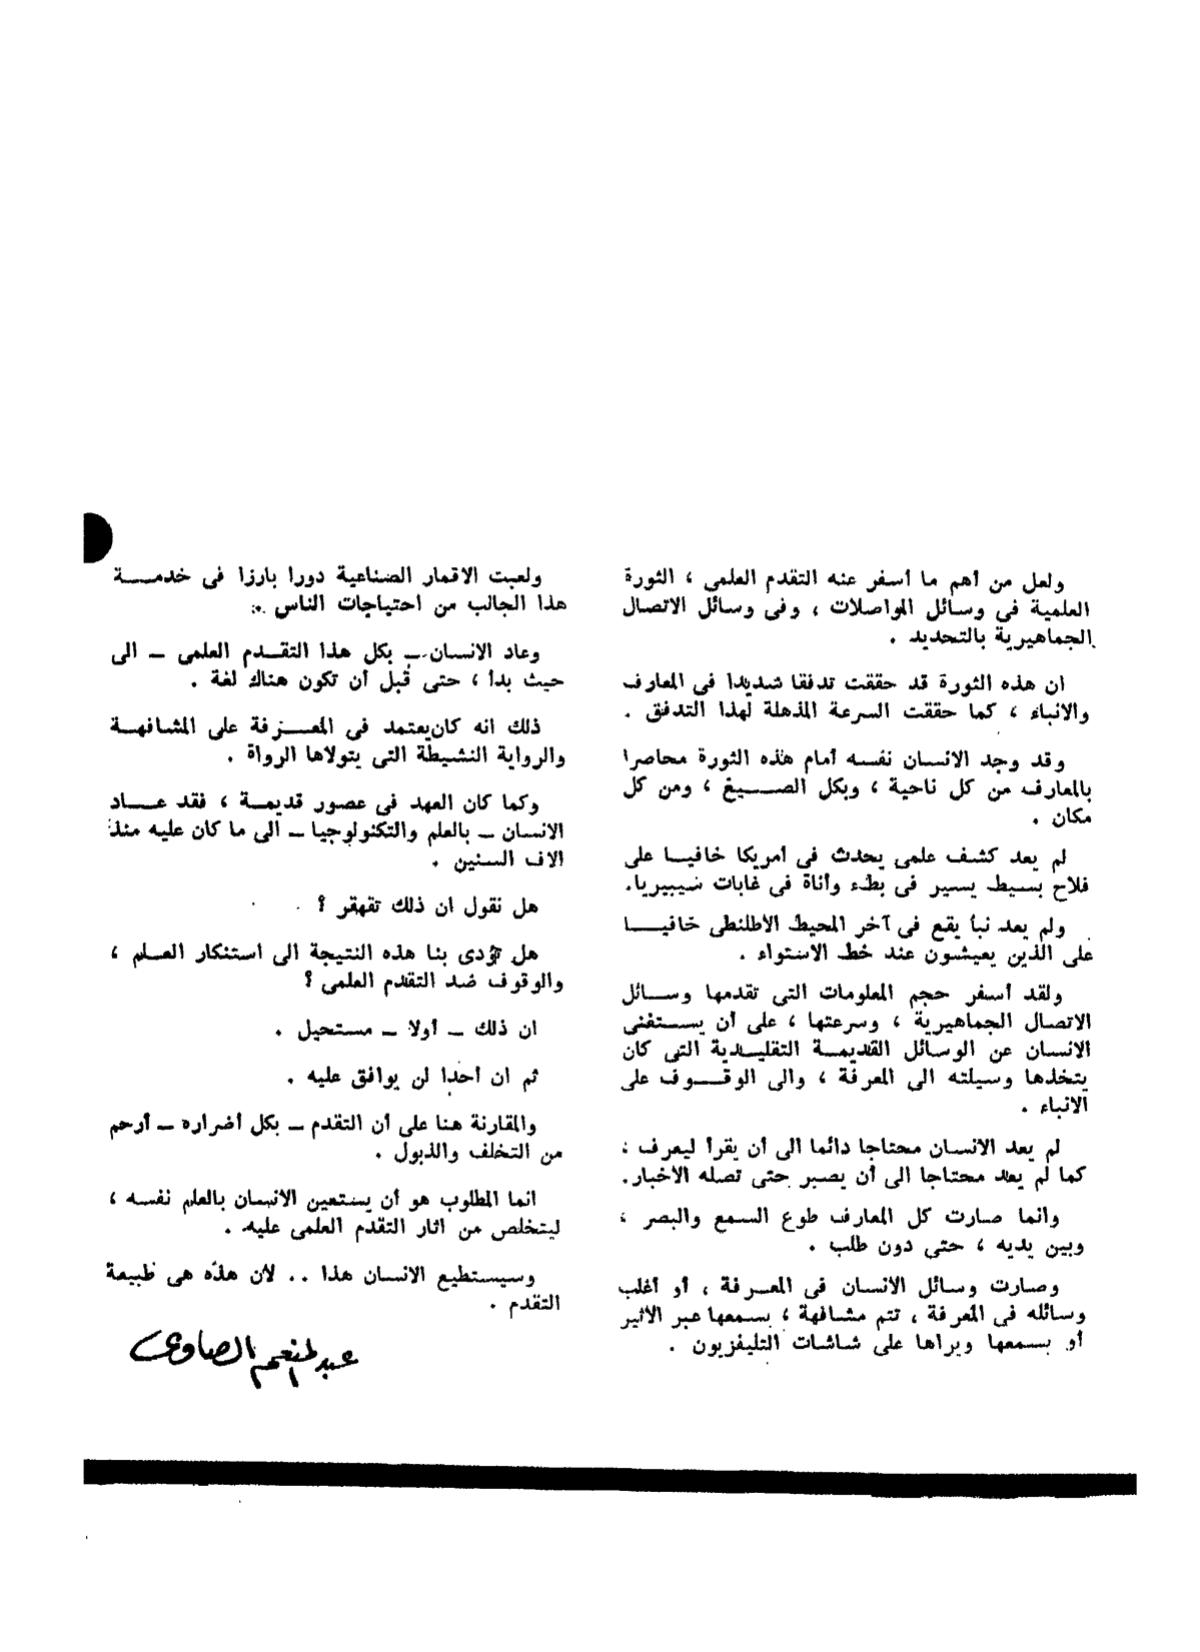 ولعل من أهم ما أسفر عنه التقدم العلمى ، الثورة
العلمية فى وسائل المواصلات ، وفى وسائل الاتصال
الجماهيرية بالتحديد .
ان هذه الثورة قد حققت تدفقا شديدا فى المعارف
والانباء ، كما حققت السرعة المذهلة لهذا التدفق .
وقد وجد الانسان نفسه أمام هذه الثورة محاصرا
بالمعارف من كل ناحية ، وبكل الصيغ ، ومن كل
مكان .
لم يعد كشف علمى يحدث فى أمريكا خافيا على
فلاح بسيط يسير فى بطء وأناة فى غابات سيبيريا.
ولم يعد نبأ يقع فى آخر المحيط الاطلنطى خافيا
على الذين يعيشون عند خط الاستواء .
ولقد أسفر حجم المعلومات التى تقدمها وسائل
الاتصال الجماهيرية ، وسرعتها ، على أن يستغنى
الانسان عن الوسائل القديمة التقليدية التى كان
يتخذها وسيلته الى المعرفة ، والى الوقوف على
الانباء .
لم يعد الانسان محتاجا دائما الى أن يقرأ ليعرف ؛
كما لم يعد محتاجا الى أن يصبر حتى تصله الأخبار.
وانما صارت كل المعارف طوع السمع والبصر ،
وبين يديه ، حتى دون طلب .
وصارت وسائل الانسان فى المعرفة ، أو أغلب
وسائله فى المعرفة ، تتم مشافهة ؛ يسمعها عبر الأثير
أو يسمعها ويراها على شاشات التليفزيون .
ولعبت الاقمار الصناعية دورا بارزا فى خدمة
هذا الجالب من احتياجات الناس .
وعاد الانسان – بكل هذا التقدم العلمى – الى
حيث بدأ ، حتى قبل أن تكون هناك لغة .
ذلك انه كان يعتمد فى المعرفة على المشافهة
والرواية النشيطة التى يتولاها الرواة .
وكما كان العهد فى عصور قديمة ، فقد عاد
الانسان – بالعلم والتكنولوجيا – الى ما كان عليه منذ
الاف السنين .
هل نقول ان ذلك تقهقر ؟
هل تؤدى بنا هذه النتيجة الى استنكار العلم ،
والوقوف ضد التقدم العلمى ؟
ان ذلك – أولا – مستحيل .
ثم ان أحدا لن يوافق عليه .
والمقارنة هنا على أن التقدم – بكل أضراره – أرحم
من التخلف والذبول .
انما المطلوب هو أن يستعين الانسان بالعلم نفسه ،
ليتخلص من اثار التقدم العلمى عليه .
وسيستطيع الانسان هذا .. لأن هذه هى طبيعة
التقدم .
عبد المنعم الصاوى